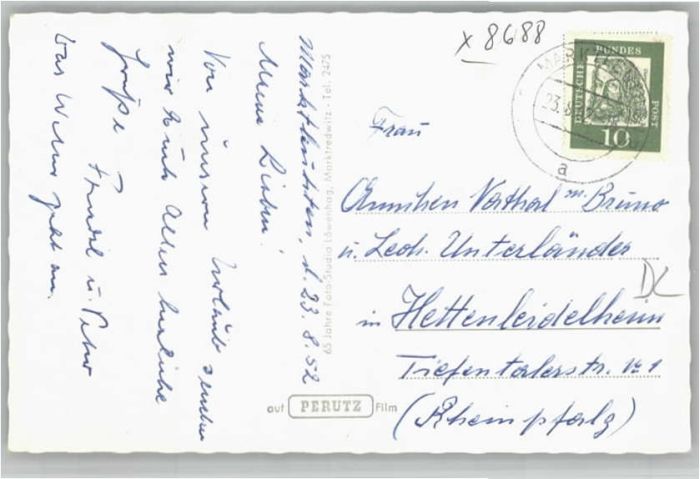 x 8688
MARKTLEU
23.8.
a
DEUTSCHE
BUNDES
POST
10
Marktleuthen, d. 23.8.52
Meine Lieben!
Von unserem Urlaub senden
wir Euch Allen herzliche
Grüße Fredl u. Peter
Das Wetter geht an.
65 Jahre Foto-Studio Löwenhag, Marktredwitz - Tel. 2475
auf PERUTZ Film
Frau
Annchen Nothal m. Bruno
u. Leoh. Unterländer
DL
in Hettenleidelheim
Tiefentalerstr. Nr 1
(Rheinpfalz)